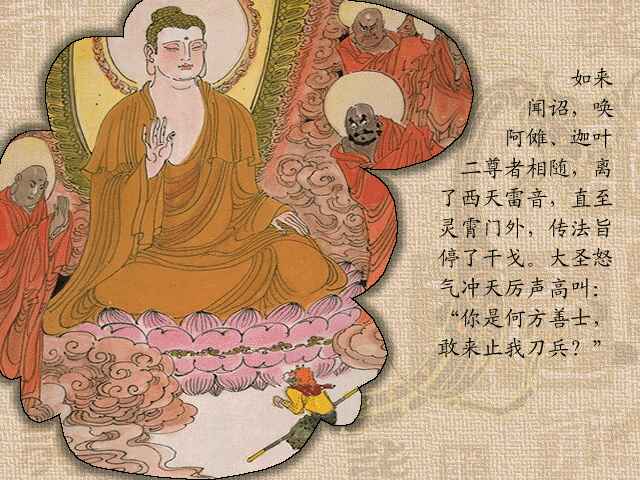 如来
闻诏，唤
阿傩、迦叶
二尊者相随，离
了西天雷音，直至
灵霄门外，传法旨
停了干戈。大圣怒
气冲天厉声高叫：
“你是何方善士，
敢来止我刀兵？”